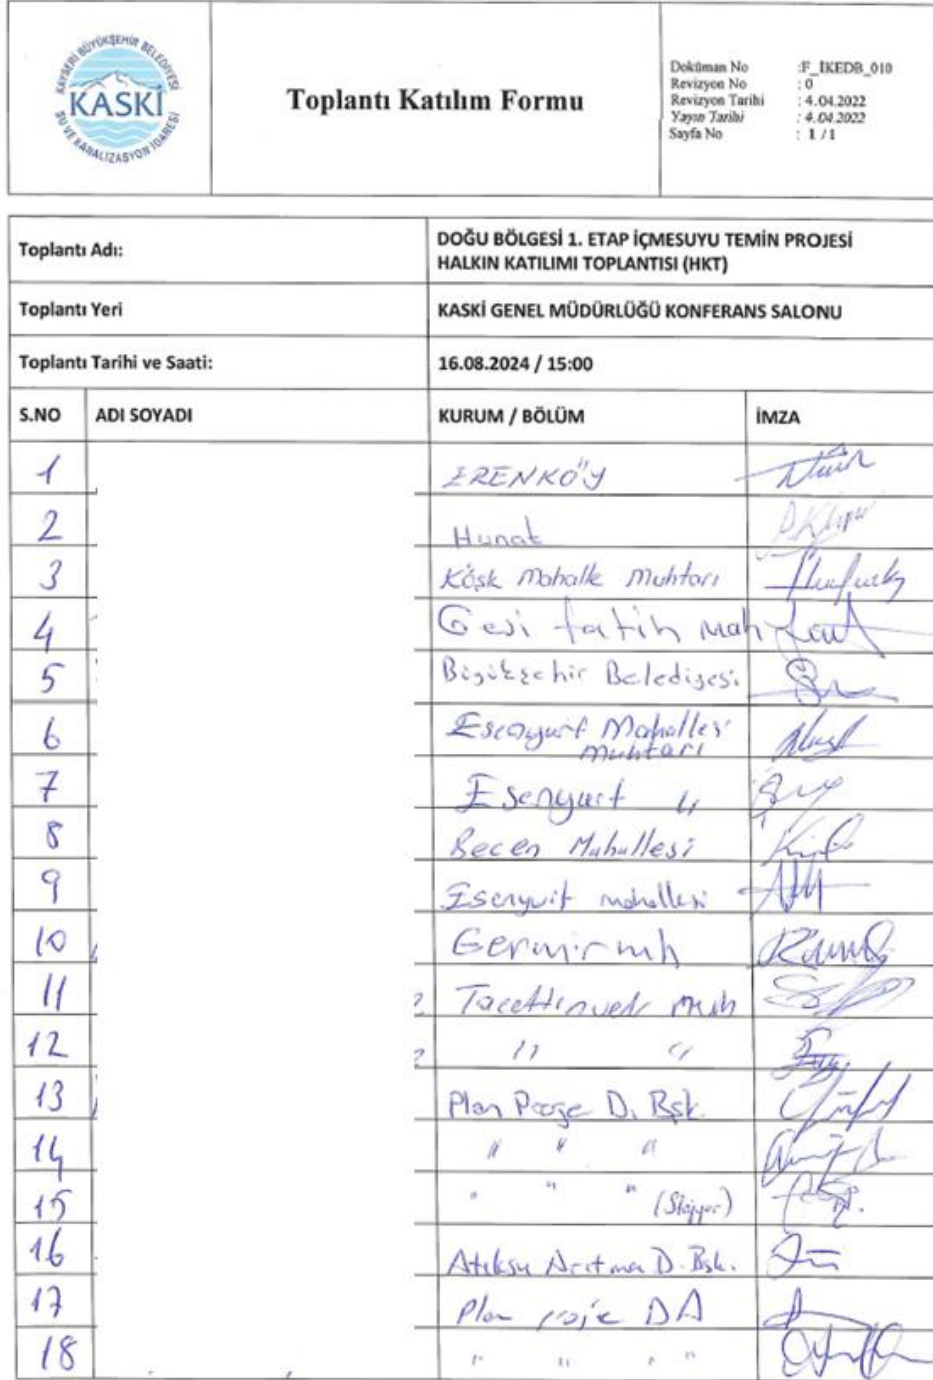 KAYSERİ BÜYÜKŞEHİR BELEDİYESİ
KASKİ
SU VE KANALİZASYON İDARESİ
Toplantı Katılım Formu
Doküman No :F_İKEDB_010
Revizyon No : 0
Revizyon Tarihi : 4.04.2022
Yayın Tarihi : 4.04.2022
Sayfa No : 1 / 1
Toplantı Adı: DOĞU BÖLGESİ 1. ETAP İÇMESUYU TEMİN PROJESİ
HALKIN KATILIMI TOPLANTISI (HKT)
Toplantı Yeri KASKİ GENEL MÜDÜRLÜĞÜ KONFERANS SALONU
Toplantı Tarihi ve Saati: 16.08.2024 / 15:00
S.NO ADI SOYADI KURUM / BÖLÜM İMZA
1 ERENKÖY
2 Hunat
3 Köşk Mahalle Muhtarı
4 Gesi fatih mah
5 Büyükşehir Belediyesi
6 Esenyurt Mahallesi
muhtarı
7 Esenyurt "
8 Becen Mahallesi
9 Esenyurt mahallesi
10 Germir mh
11 Tacettinveli Mah
12 " "
13 Plan Proje D. Bşk.
14 " " "
15 " " " (Stajyer)
16 Atıksu Arıtma D. Bşk.
17 Plan proje DA
18 " " " "